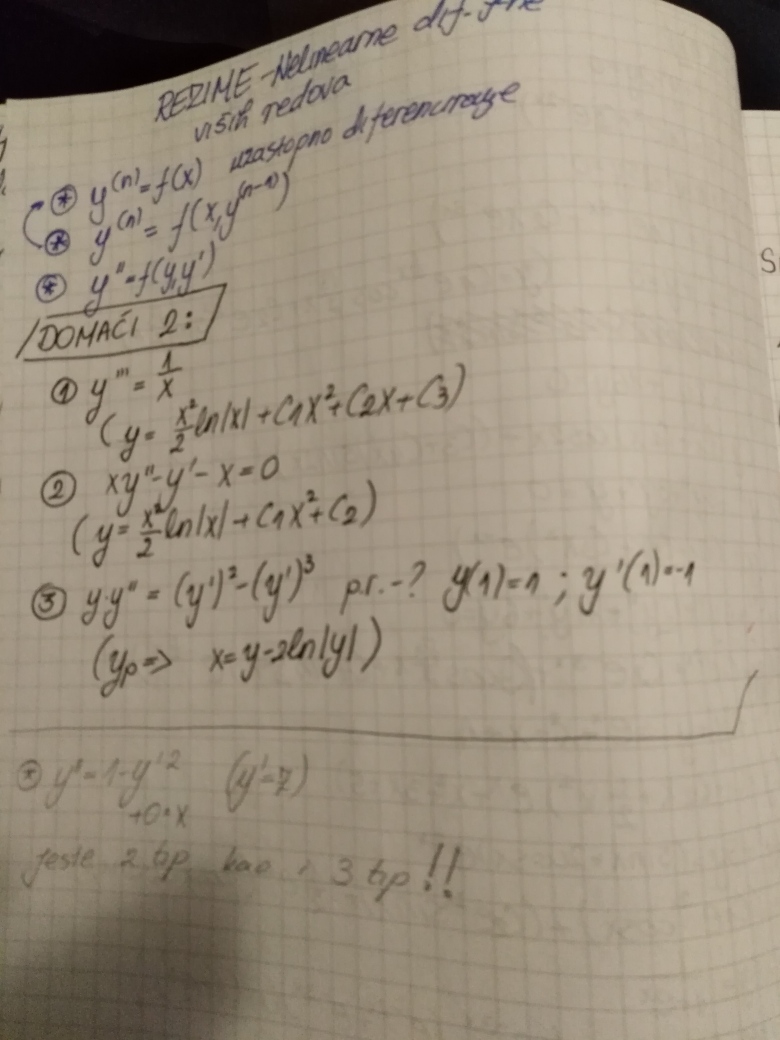 REZIME - Nelinearne dif. j-ne
viših redova
⊛ y⁽ⁿ⁾ = f(x) uzastopno diferenciranje
⊛ y⁽ⁿ⁾ = f(x,y⁽ⁿ⁻¹⁾)
⊛ y'' = f(y,y')
DOMAĆI 2:
① y''' = 1/x
(y = x²/2 ln|x| + C1x² + C2x + C3)
② xy'' - y' - x = 0
(y = x²/2 ln|x| + C1x² + C2)
③ y·y'' = (y')² - (y')³ p.r. - ? y(1)=1 ; y'(1)=-1
(yp => x = y - 2ln|y|)
⊛ y'' = 1 - y'² (y'=z)
+0·x
jeste 2 tip kao i 3 tip!!